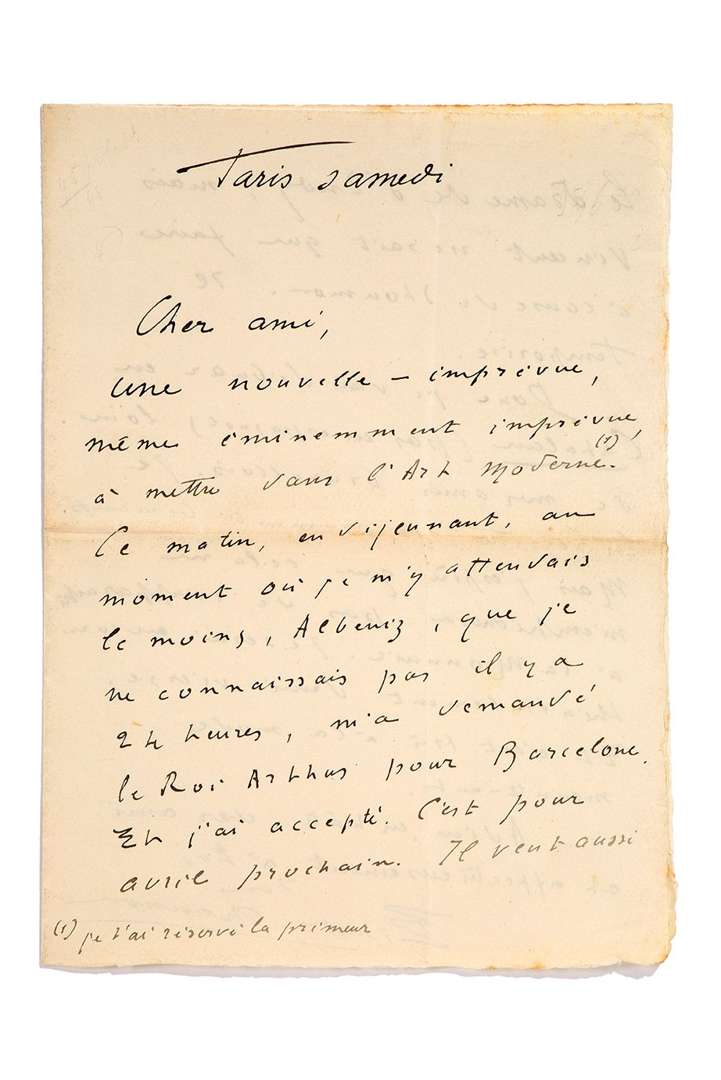 Paris samedi
Cher ami,
une nouvelle – imprévue,
même éminemment imprévue,
à mettre dans l'Art Moderne. (1)
Ce matin, en déjeunant, au
moment où je m'y attendais
le moins, Albeniz, que je
ne connaissais pas il y a
24 heures, m'a demandé
le Roi Arthus pour Barcelone.
Et j'ai accepté. C'est pour
avril prochain. Il veut aussi
(1) je t'ai réservé la primeur